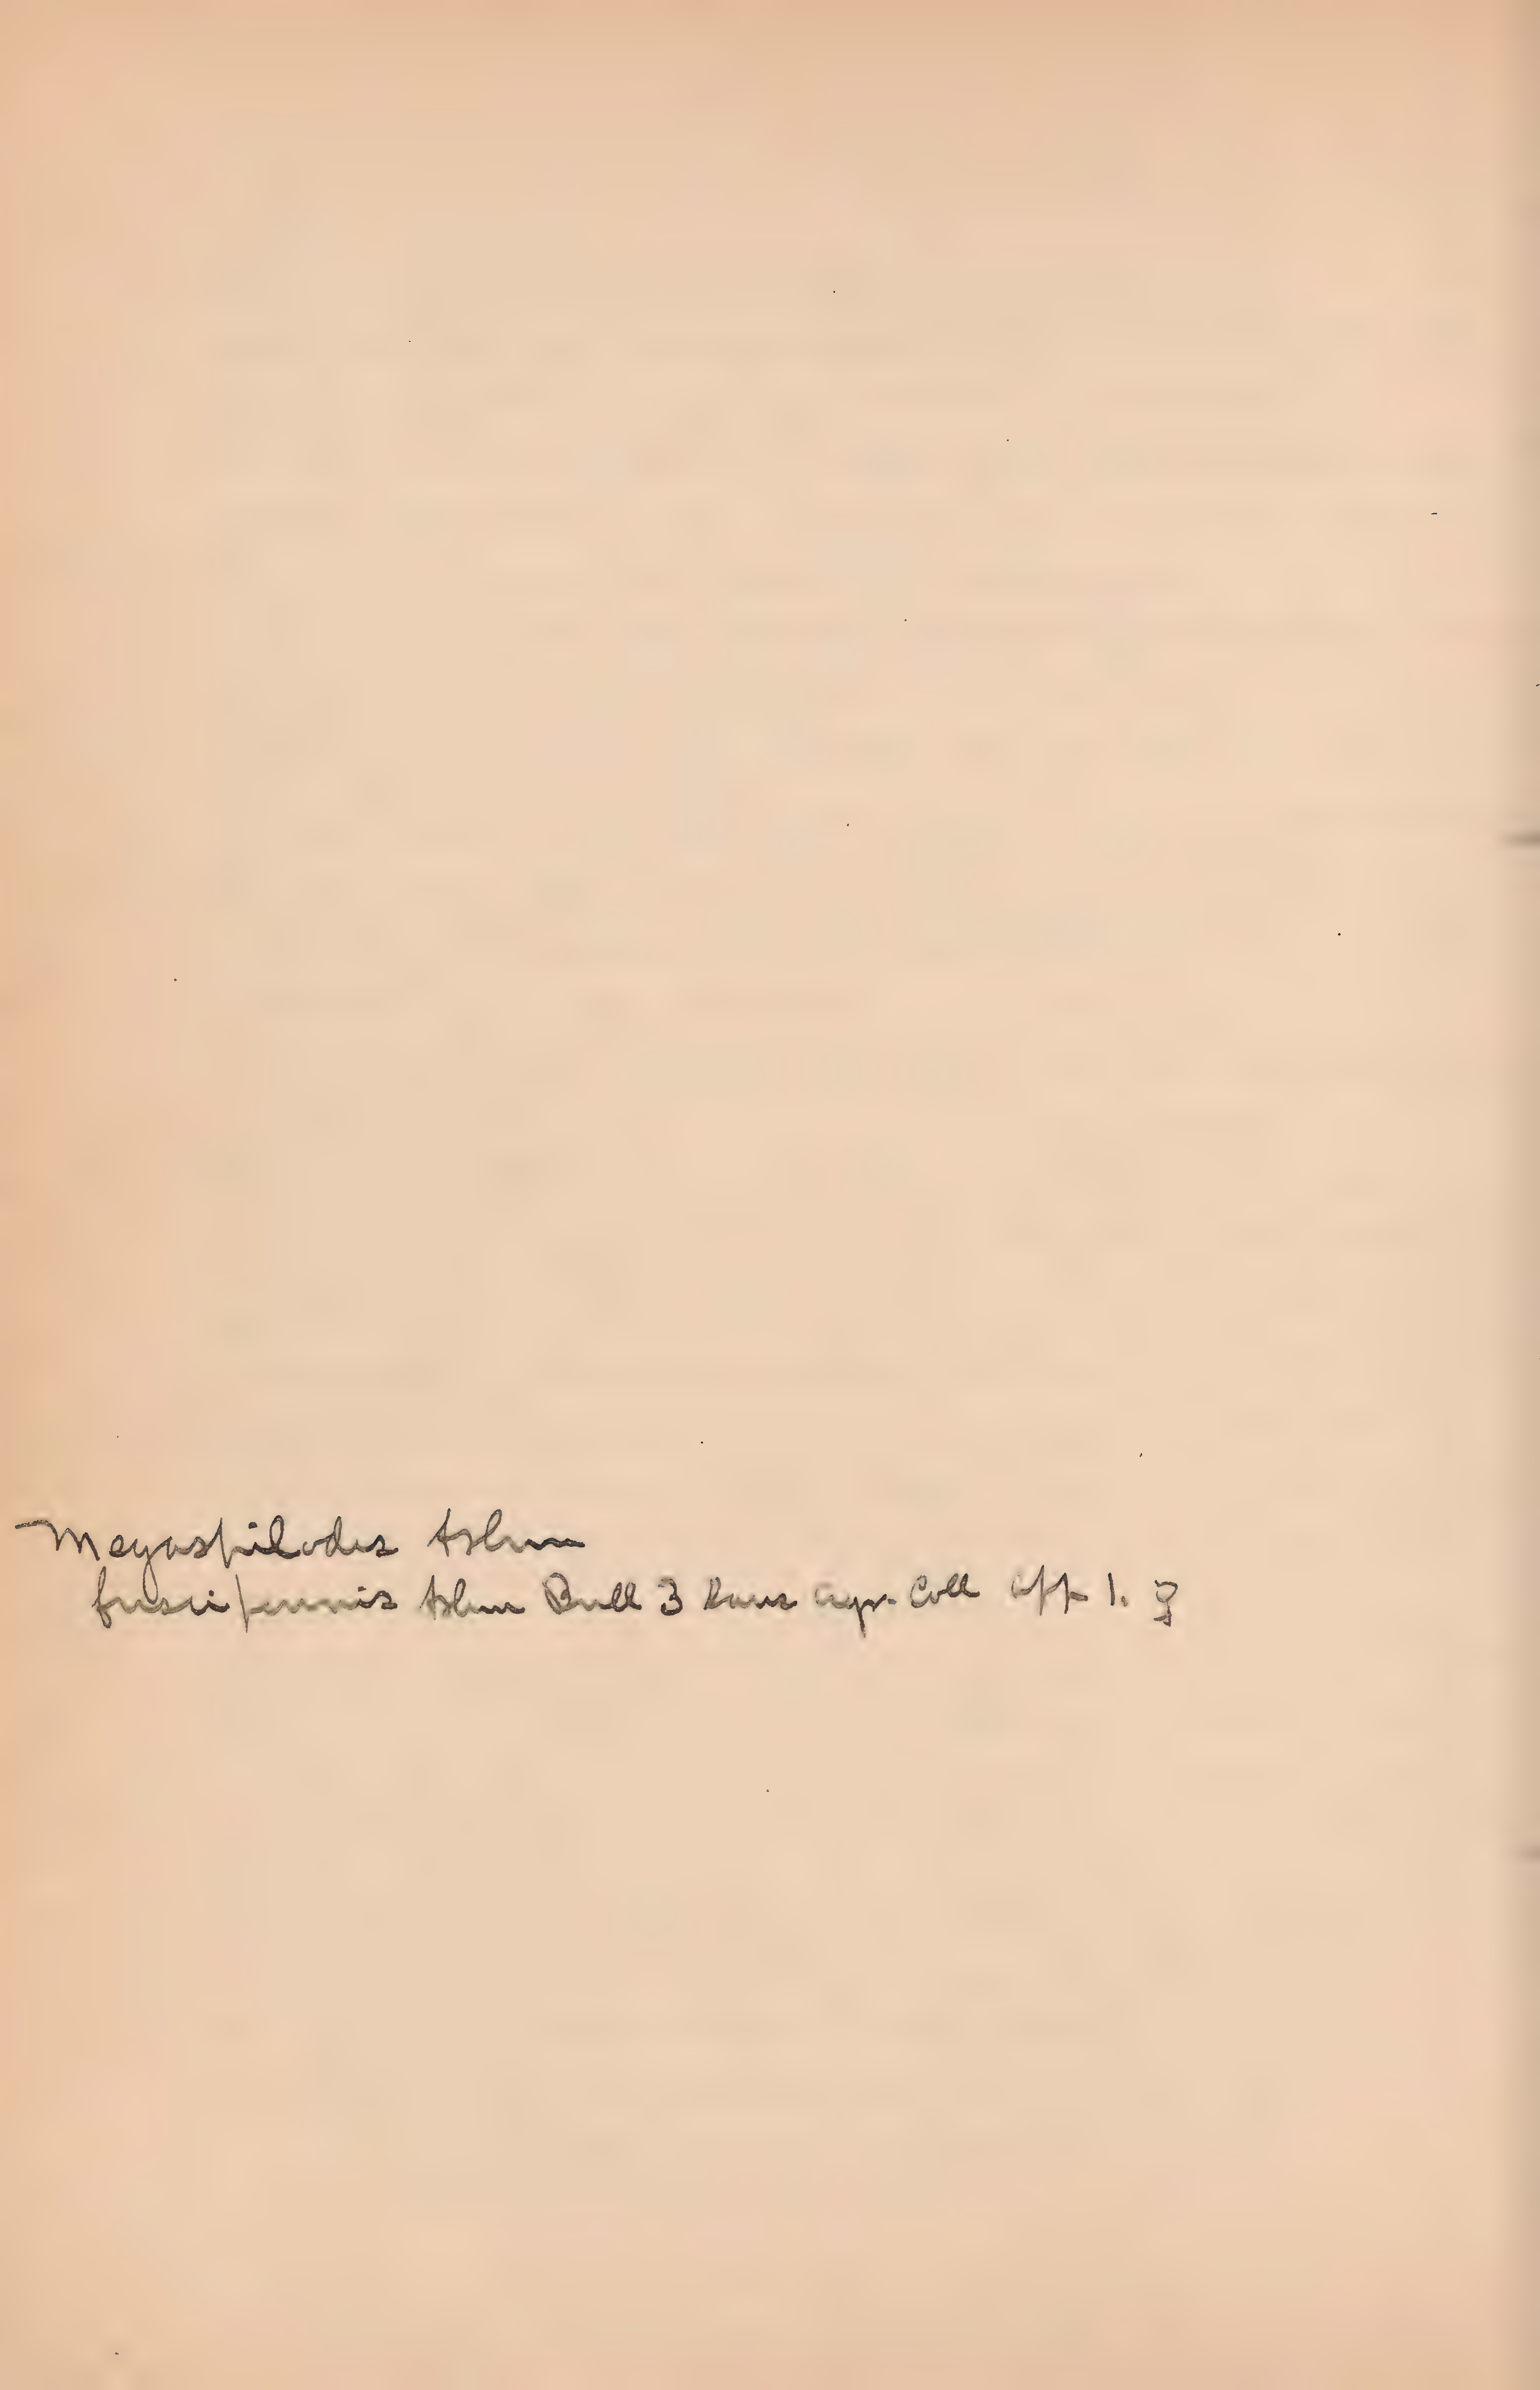 Megaspilodes Ashm
fuscipennis Ashm Bull 3 Kans Agr. Coll App 1.